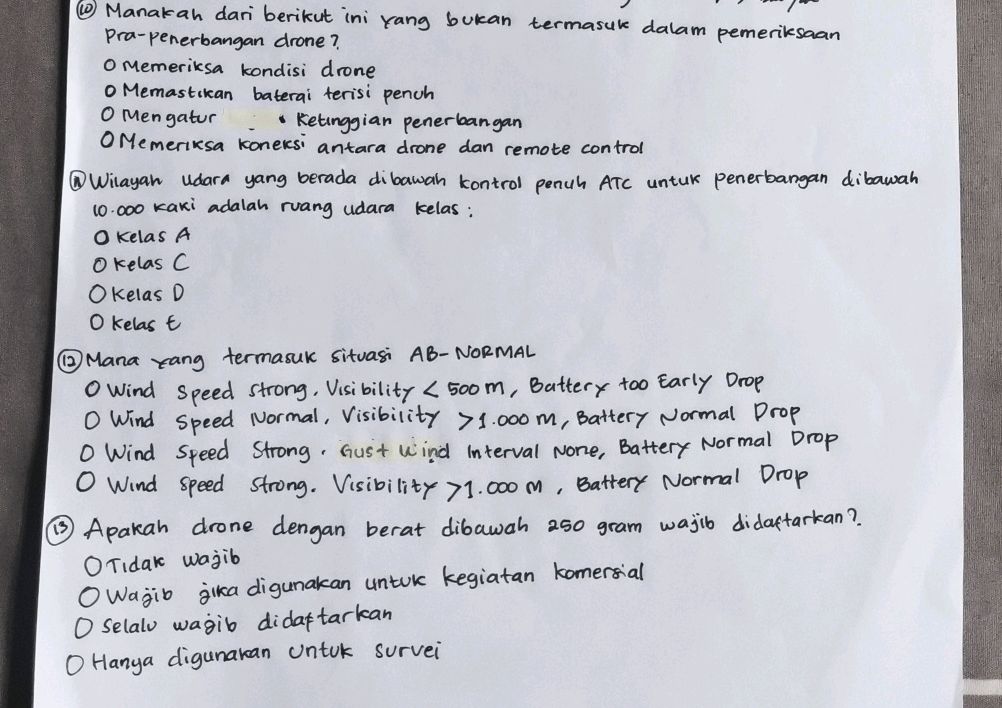 ⑩ Manakah dari berikut ini yang bukan termasuk dalam pemeriksaan
Pra-penerbangan drone?
O Memeriksa kondisi drone
O Memastikan baterai terisi penuh
O Mengatur Ketinggian penerbangan
O Memeriksa koneksi antara drone dan remote control
⑪ Wilayah udara yang berada dibawah kontrol penuh ATC untuk penerbangan dibawah
10.000 kaki adalah ruang udara kelas :
O Kelas A
O Kelas C
O Kelas D
O Kelas E
⑫ Mana yang termasuk situasi AB-NORMAL
O Wind Speed strong, Visibility < 500 m, Battery too Early Drop
O Wind Speed Normal, Visibility >1.000 m, Battery Normal Drop
O Wind Speed Strong. Gust Wind Interval None, Battery Normal Drop
O Wind Speed Strong. Visibility >1.000 m, Battery Normal Drop
⑬ Apakah drone dengan berat dibawah 250 gram wajib didaftarkan?
O Tidak wajib
O Wajib jika digunakan untuk kegiatan komersial
O Selalu wajib didaftarkan
O Hanya digunakan untuk survei